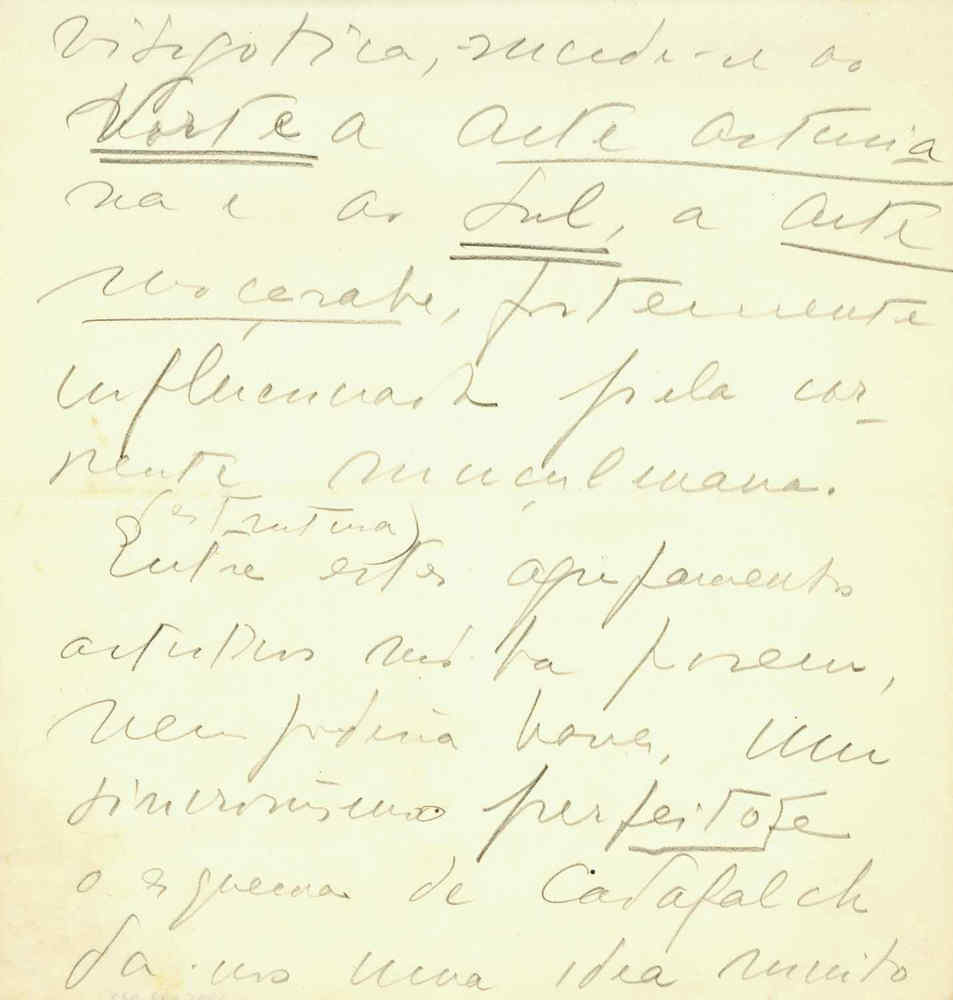 visigotica, sucede-se ao
Norte a arte asturia
na e ao Sul, a arte
moçarabe, fortemente
influenciada pela cor-
rente muçulmana.
(estrutura)
Entre estes agrupamentos
artisticos não ha porem,
nem poderia haver, um
sincronismo perfeito, e
o esquema de Cadafalch
dá-nos uma idea muito